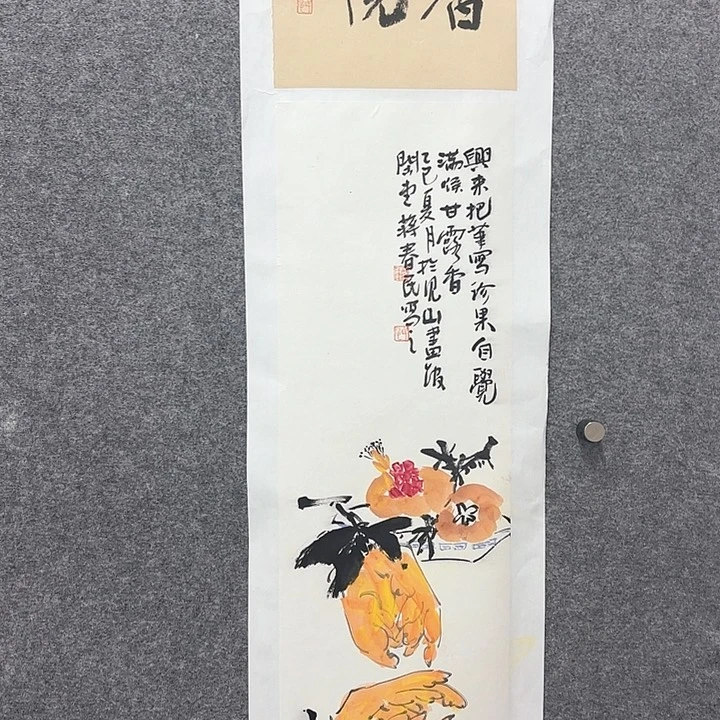 興來把筆寫珍果自覺
滿喉甘露香
乙巳夏月於見山畫
閑堂蔣春民寫之